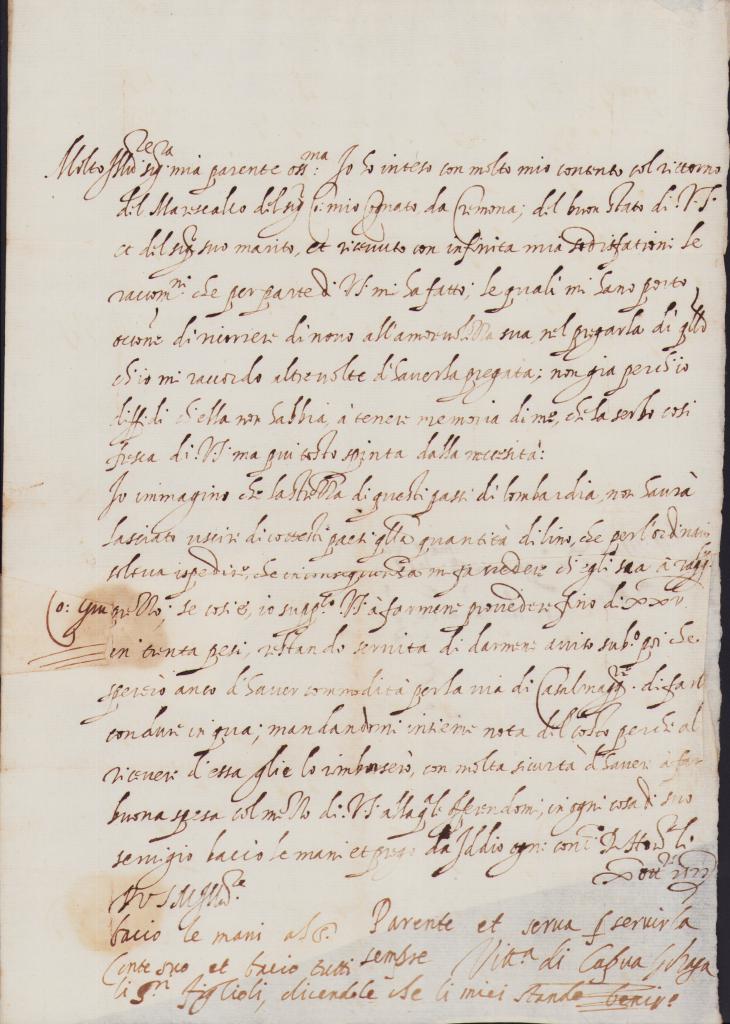 Molto Ill.re sig.ra mia parente oss.ma: Io ho inteso con molto mio contento col ritorno
del Marescalco del sig.r mio Cognato da Cremona; del buon stato di V.S.
et del sig.r suo marito, et ricevuto con infinita mia sodisfationi le
racom.ni che per parte di V.S. mi ha fatto; le quali mi hano porto
occ.one di ricorrere di novo all'amorevolezza sua nel pregarla di q.llo
ch'io mi raccordo altre volte d'haverla pregata; non gia perch'io
diffidi ch'ella non habbia, à tenere memoria di me, che la serbo cosi
fresca di V.S. ma piu tosto spinta dalla necesità:
Io immagino che la strettezza di questi passi di lombardia, non haurà
lasciato uscire di cottesti paesi q.lla quantità di lino, che per l'ordinario
soleva ispedire, che in consequenza mi fa vedere ch'egli sia à
prezzo; se cosi è, io supp.co V.S. à farmene provedere fino di XXV
in trenta pesi, restando servita di darmene aviso sub.o poi che
spererò anco d'haver commodità per la via di Casalmagg.re di farlo
condure in qua; mandandomi insieme nota del costo perche al
ricevere d'essa glie lo rimborserò, con molta sicurtà d'havere à far
buona spesa col mezzo di V.S. alla q.le offerendomi, in ogni cosa di suo
servigio baccio le mani et prego da Iddio ogni cont.o Di
XVIII
DVS Molt'Ill.re
bacio le mani al S.r Parente et serva p servirla
Conte suo et bacio tutti sempre Vitt.a di Capua
li S.ri figlioli, dicendole che li miei stanno benis.o